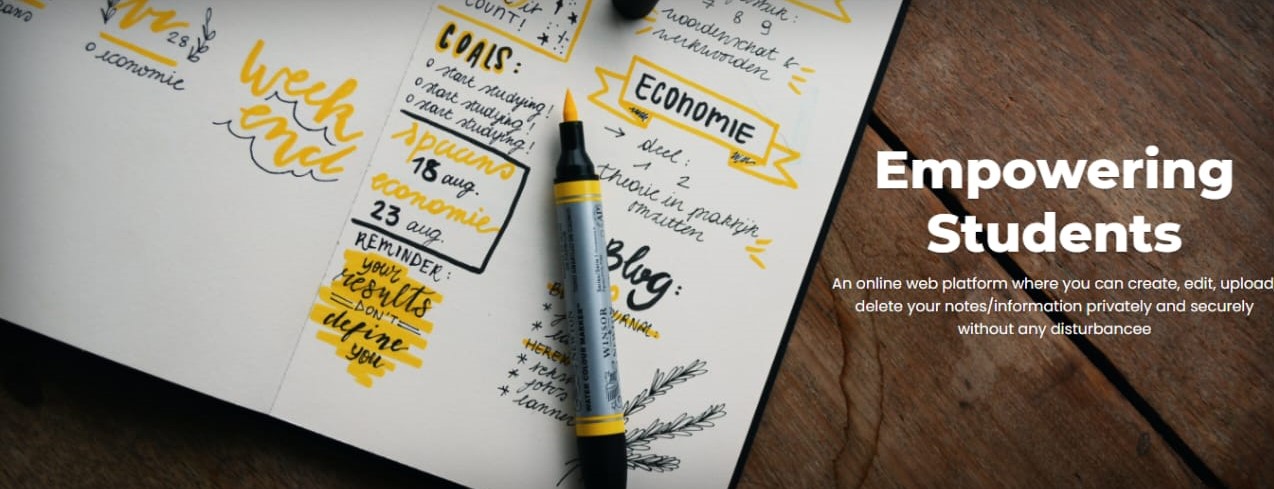 28
o economie
week
end
COUNT!
GOALS:
o start studying!
o start studying!
o start studying!
spaans
18 aug.
economie
23 aug.
REMINDER:
your
results
DON'T
define
you
7 8 9
woordenschat &
werkwoorden
ECONOMIE
→ deel:
1 2
theorie in praktijk
omzetten
Blog:
WATER COLOUR MARKER
WINSOR
Empowering
Students
An online web platform where you can create, edit, upload
delete your notes/information privately and securely
without any disturbancee